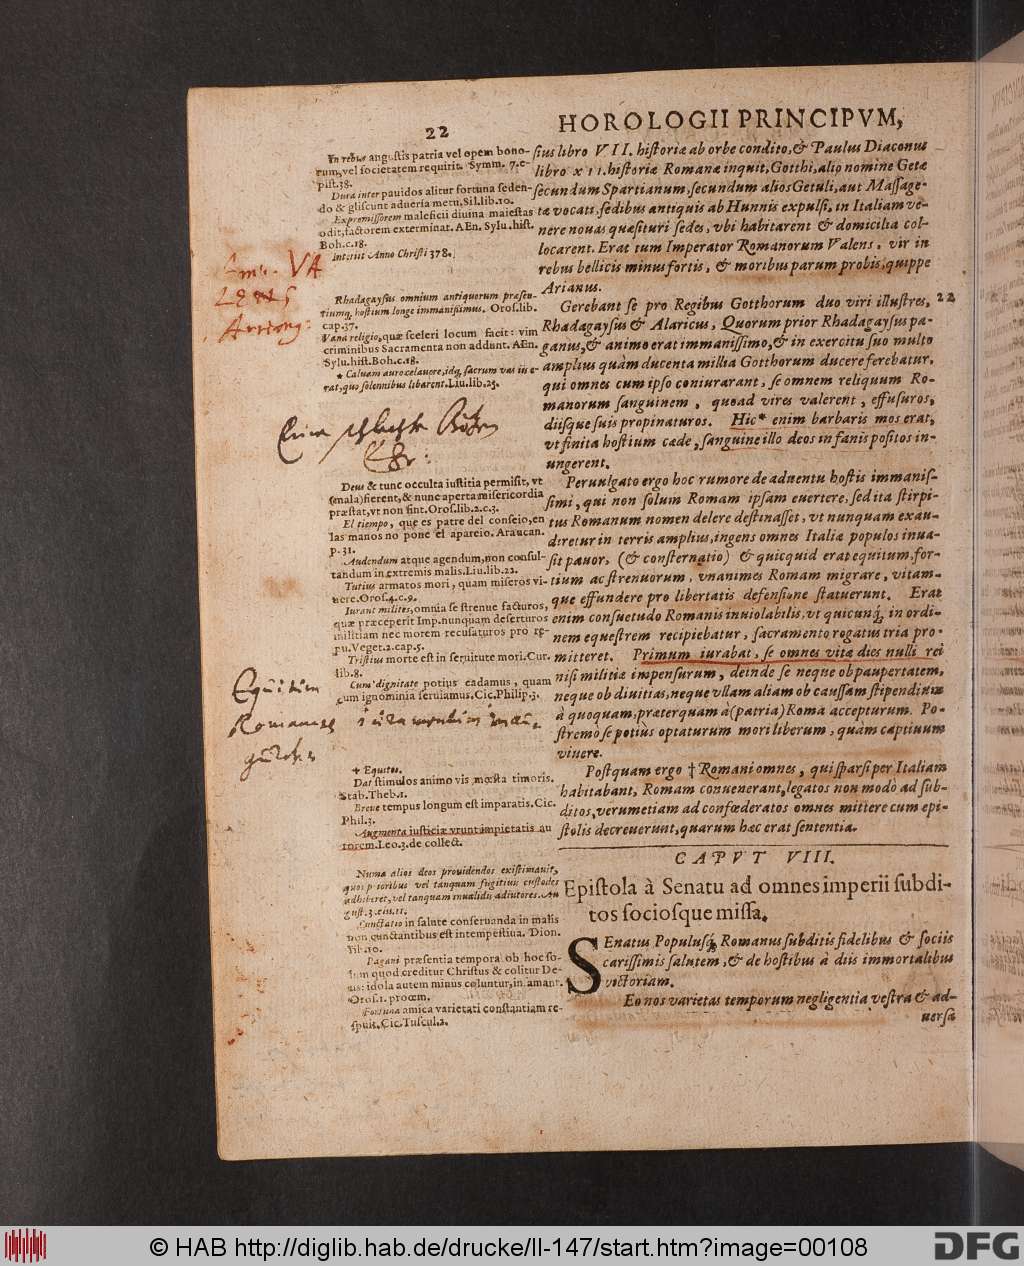 22
HOROLOGII PRINCIPVM,
In rebus angustis patria vel opem bono-
rum, vel societatem requirit. Symm. 7. e-
pist. 38.
Dura inter pauidos alitur fortuna seden-
do & gliscunt aduersa metu, Sil. lib. 10.
Expremissorem maleficii diuina maiestas
odit, factorem exterminat. AEn. Sylu. hist.
Boh. c. 18.
Interiit Anno Christi 378.
VA
LENS
Rhadagaysus omnium antiquorum præsen-
tiumq́; hostium longe immanissimus. Oros. lib.
cap. 37.
Vana religio, quæ sceleri locum facit: vim
criminibus Sacramenta non addunt. AEn.
Sylu. hist. Boh. c. 18.
* Caluam auro cælauere, idq́; sacrum vas iis e-
rat, quo solennibus libarent. Liu. lib. 23.
Deus & tunc occulta iustitia permisit, vt
(mala) fierent, & nunc aperta misericordia
præstat, vt non sint. Oros. lib. 2. c. 3.
El tiempo, que es patre del conseio, en
las manos no pone el apareio. Araucan.
p. 31.
Audendum atque agendum, non consul-
tandum in extremis malis. Liu. lib. 22.
Tutius armatos mori, quam miseros vi-
uere. Oros. 4. c. 9.
Iurant milites, omnia se strenue facturos,
quæ præceperit Imp. nunquam deserturos
militiam nec morem recusaturos pro re-
pu. Veget. 2. cap. 5.
Tristius morte est in seruitute mori. Cur.
lib. 8.
Cum dignitate potius cadamus, quam
cum ignominia seruiamus. Cic. Philip. 3.
Equitum
Romanorum
† Equites.
Dat stimulos animo vis mœsta timoris.
Stab. Theb. 1.
Breue tempus longum est imparatis. Cic.
Phil. 3.
Augmenta iusticiæ vrunt impietatis au
torem. Leo. 3. de collect.
Numa alios deos prouidendos existimauit,
quos prioribus vel tanquam fugitiuis custodes
adhiberet, vel tanquam inualidis adiutores. Au
gust. 3. ciu. 11.
Cunctatio in salute conseruanda in malis
non cunctantibus est intempestiua. Dion.
lib. 10.
Pagani præsentia tempora ob hoc so-
lum quod creditur Christus & colitur De-
us: idola autem minus coluntur, in amant.
Oros. 1. proœm.
Fortuna amica varietati constantiam re-
spuit. Cic. Tuscul. 2.
sius libro VII. historiæ ab orbe condito, & Paulus Diaconus
libro XII. historiæ Romanæ inquit, Gotthi, alio nomine Getæ
secundum Spartianum, secundum alios Getuli, aut Massage-
tæ vocati, sedibus antiquis ab Hunnis expulsi, in Italiam ve-
nere nouas quæsituri sedes, vbi habitarent & domicilia col-
locarent. Erat tum Imperator Romanorum Valens, vir in
rebus bellicis minus fortis, & moribus parum probis, quippe
Arianus.
Gerebant se pro Regibus Gotthorum duo viri illustres, 22
Rhadagaysus & Alaricus, Quorum prior Rhadagaysus pa-
ganus, & animo erat immanissimo, & in exercitu suo multo
amplius quàm ducenta millia Gotthorum ducere ferebatur.
qui omnes cum ipso coniurarant, se omnem reliquum Ro-
manorum sanguinem, quoad vires valerent, effusuros,
diisque suis propinaturos. Hic* enim barbaris mos erat,
vt finita hostium cæde, sanguine illo deos in fanis positos in-
ungerent.
Peruulgato ergo hoc rumore de aduentu hostis immanis-
simi, qui non solum Romam ipsam euertere, sed ita stirpi-
tus Romanum nomen delere destinasset, vt nunquam exau-
diretur in terris amplius, ingens omnes Italiæ populos inua-
sit pauor, (& consternatio) & quicquid erat equitum, for-
tium ac strenuorum, vnanimes Romam migrare, vitam-
que effundere pro libertatis defensione statuerunt. Erat
enim consuetudo Romanis inuiolabilis, vt quicunq́; in ordi-
nem equestrem recipiebatur, sacramento rogatus tria pro-
mitteret. Primum iurabat, se omnes vitæ dies nulli rei
nisi militiæ impensurum, deinde se neque ob paupertatem,
neque ob diuitias, neque vllam aliam ob caussam stipendium
à quoquam, præterquam à (patria) Roma accepturum. Po-
stremo se potius optaturum mori liberum, quàm captiuum
viuere.
Postquam ergo † Romani omnes, qui sparsi per Italiam
habitabant, Romam conuenerant, legatos non modò ad sub-
ditos, verumetiam ad confœderatos omnes mittere cum epi-
stolis decreuerunt, quarum hæc erat sententia.
CAPVT VIII.
Epistola à Senatu ad omnes imperii subdi-
tos sociosque missa.
SENatus Populusq́; Romanus subditis fidelibus & sociis
carissimis salutem, & de hostibus à diis immortalibus
victoriam.
Eo nos varietas temporum negligentia vestra & ad-
uersa
© HAB http://diglib.hab.de/drucke/ll-147/start.htm?image=00108
DFG